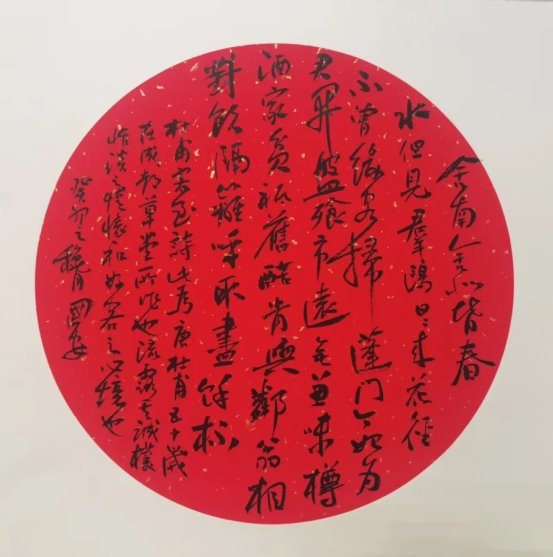 舍南舍北皆春
水但見羣鷗日日来花徑
不曾緣客掃蓬門今始为
君開盤飧市遠無兼味樽
酒家貧秖舊醅肯與鄰翁相
對飲隔籬呼取盡餘杯
杜甫客至詩此为唐杜甫五十歲
在成都草堂所作也流露其誠樸
恬淡之情懷和好客之心境也
癸卯之穐月國安